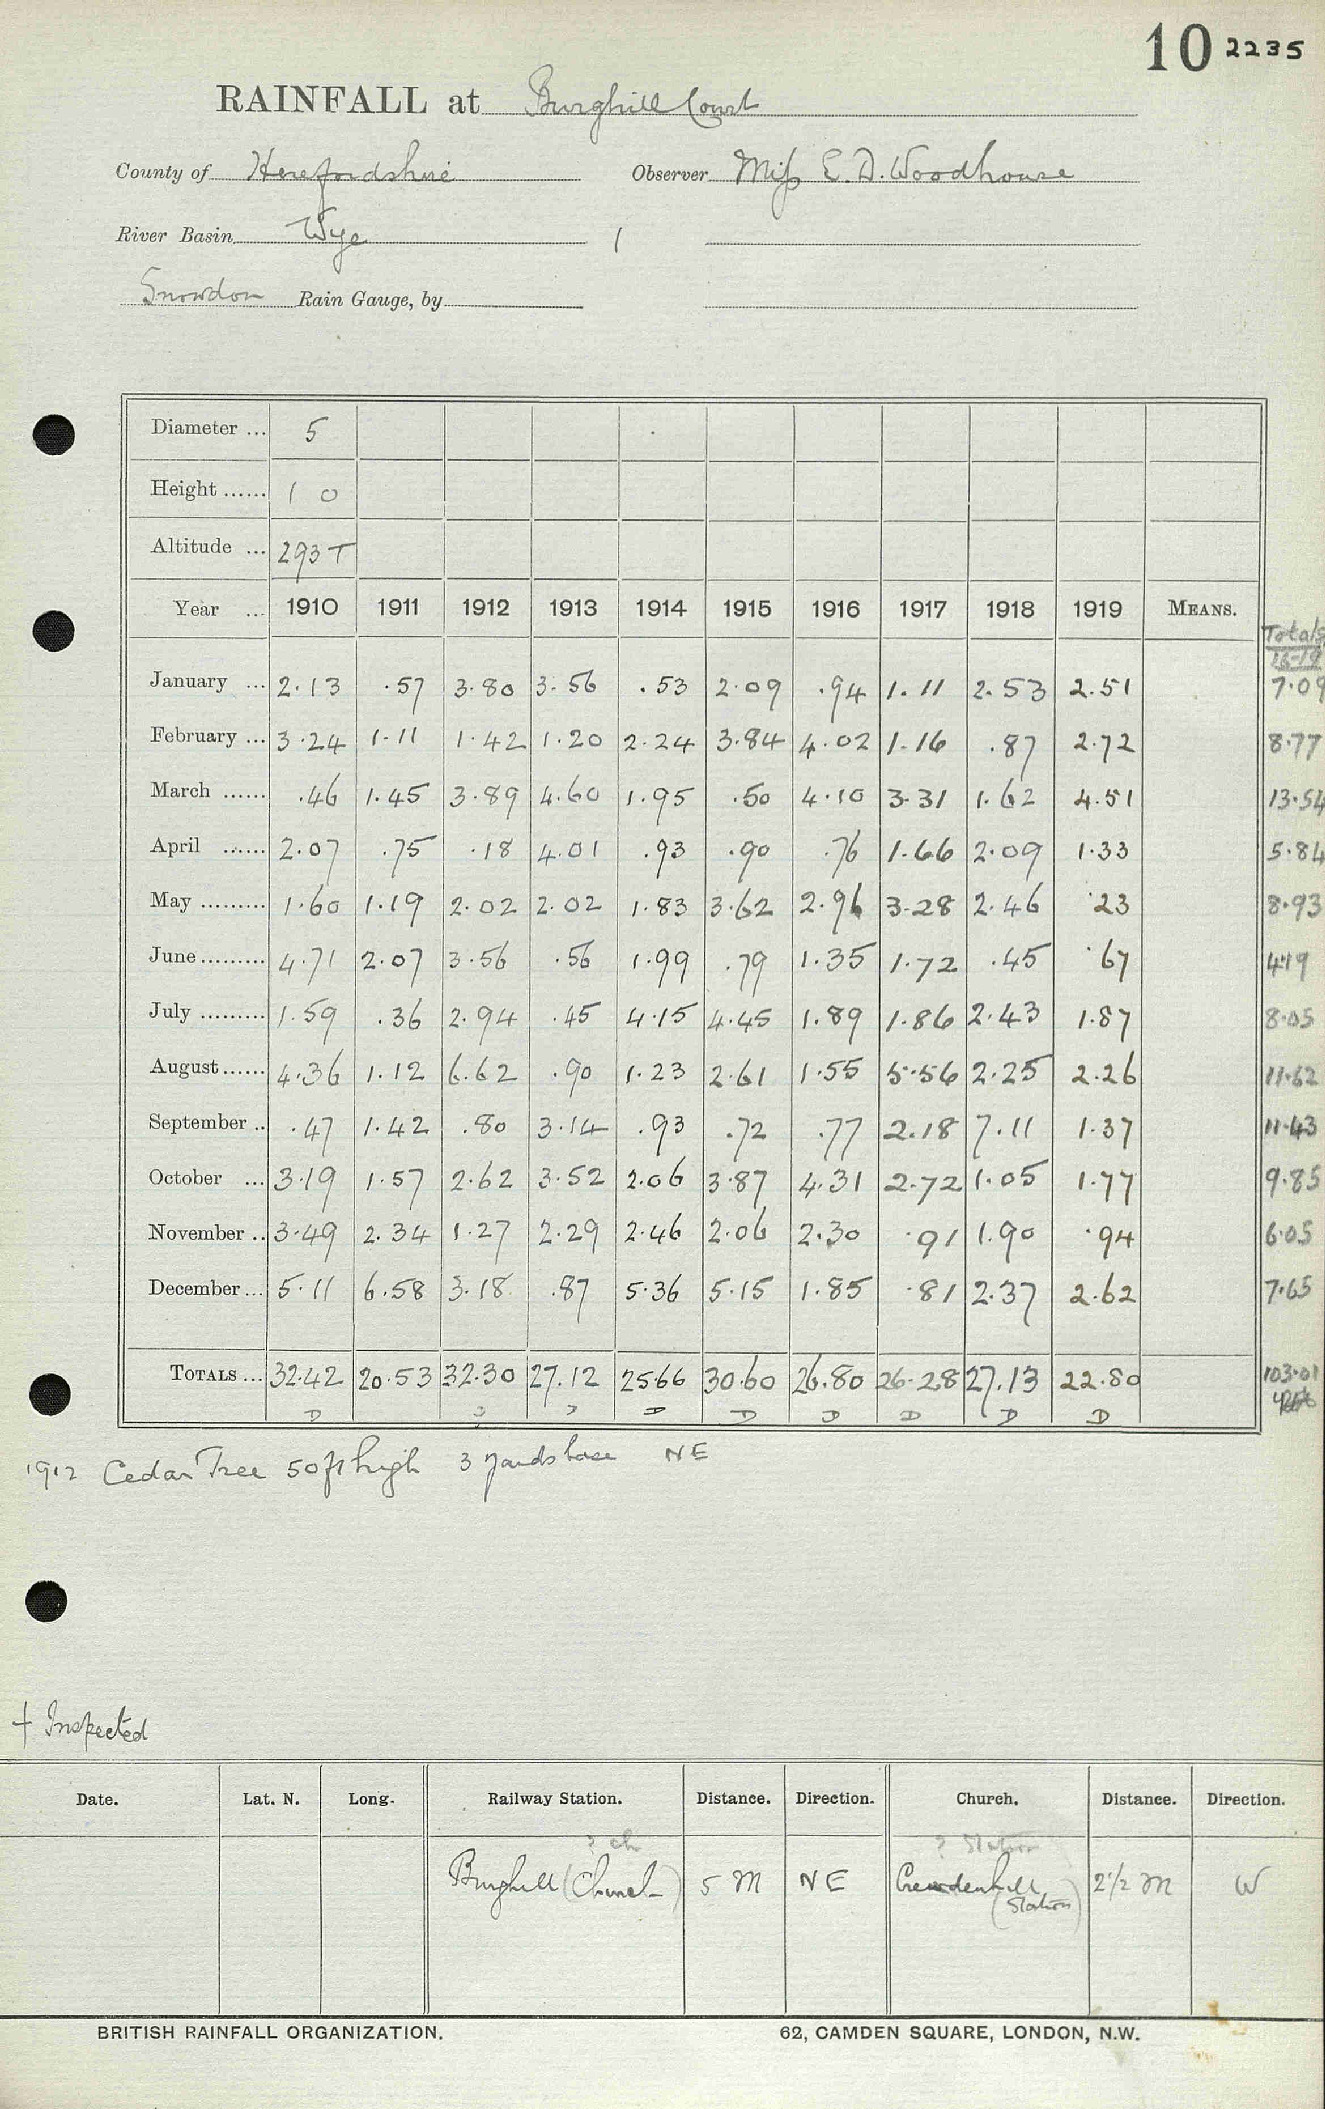 10 2235
RAINFALL at Burghill Court
County of Herefordshire Observer Miss E. D. Woodhouse
River Basin Wye 1
Snowdon Rain Gauge, by
Diameter ... 5
Height ...... 1 0
Altitude ... 293 T
Year ... 1910 1911 1912 1913 1914 1915 1916 1917 1918 1919 MEANS. Totals
16-19
January ... 2.13 .57 3.80 3.56 .53 2.09 .94 1.11 2.53 2.51 7.09
February ... 3.24 1.11 1.42 1.20 2.24 3.84 4.02 1.16 .87 2.72 8.77
March ...... .46 1.45 3.89 4.60 1.95 .50 4.10 3.31 1.62 4.51 13.54
April ...... 2.07 .75 .18 4.01 .93 .90 .76 1.66 2.09 1.33 5.84
May ......... 1.60 1.19 2.02 2.02 1.83 3.62 2.96 3.28 2.46 .23 8.93
June ......... 4.71 2.07 3.56 .56 1.99 .79 1.35 1.72 .45 .67 4.19
July ......... 1.59 .36 2.94 .45 4.15 4.45 1.89 1.86 2.43 1.87 8.05
August ...... 4.36 1.12 6.62 .90 1.23 2.61 1.55 5.56 2.25 2.26 11.62
September .. .47 1.42 .80 3.14 .93 .72 .77 2.18 7.11 1.37 11.43
October ... 3.19 1.57 2.62 3.52 2.06 3.87 4.31 2.72 1.05 1.77 9.85
November .. 3.49 2.34 1.27 2.29 2.46 2.06 2.30 .91 1.90 .94 6.05
December ... 5.11 6.58 3.18 .87 5.36 5.15 1.85 .81 2.37 2.62 7.65
TOTALS ... 32.42 20.53 32.30 27.12 25.66 30.60 26.80 26.28 27.13 22.80 103.01
D D D D D D D D D
1912 Cedar Tree 50 ft high 3 yards base NE
† Inspected
Date. Lat. N. Long. Railway Station. Distance. Direction. Church. Distance. Direction.
? ch ? Station
Burghill (Church) 5 M NE Credenhill 2½ M W
(Station)
BRITISH RAINFALL ORGANIZATION. 62, CAMDEN SQUARE, LONDON, N.W.